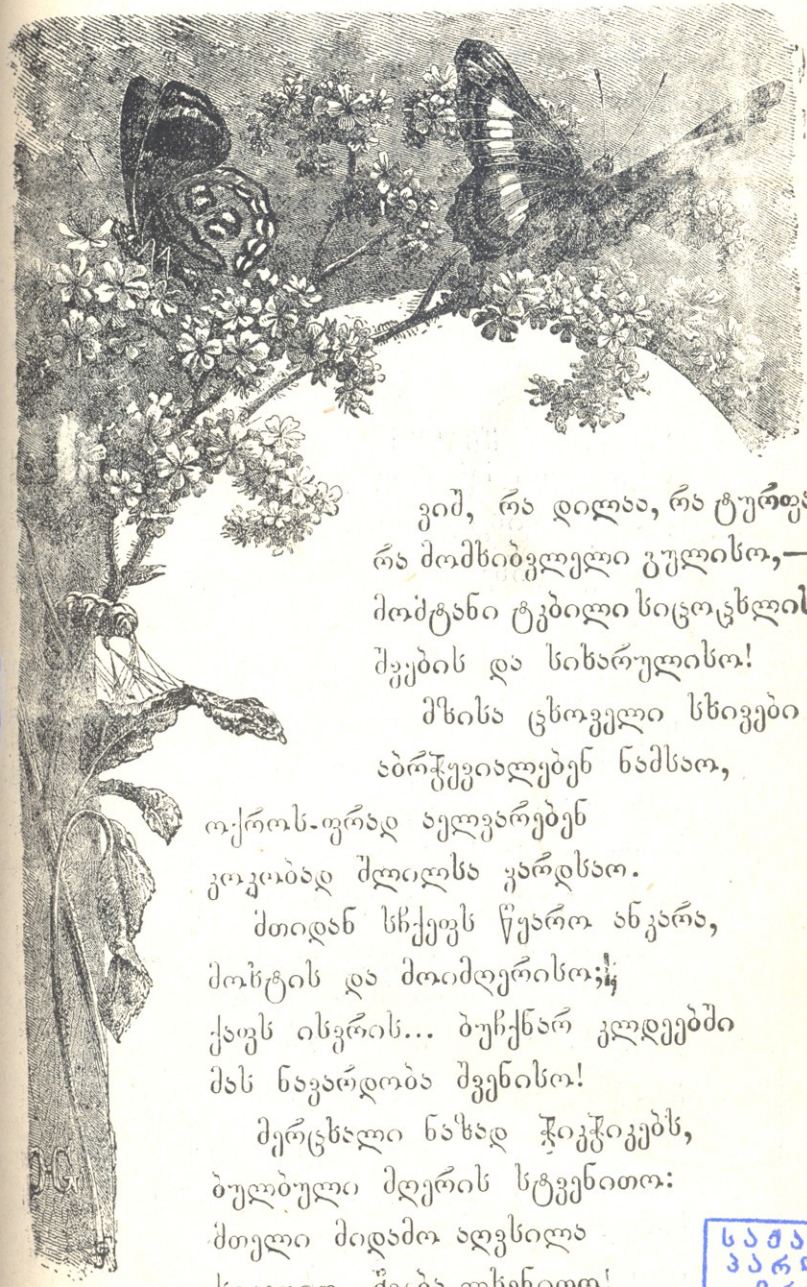 ვიშ, რა დილაა, რა ტურფა
რა მომხიბვლელი გულისო,—
მომტანი ტკბილი სიცოცხლის
შვების და სიხარულისო!
მზისა ცხოველი სხივები
აბრჭყვიალებენ ნამსაო,
ოქროს-ფრად აელვარებენ
კოკობად შლილსა ვარდსაო.
მთიდან სჩქეფს წყარო ანკარა,
მოხტის და მოიმღერისო;
ქაფს ისვრის... ბუჩქნარ კლდეებში
მას ნავარდობა შვენისო!
მერცხალი ნაზად ჭიკჭიკებს,
ბულბული მღერის სტვენითო:
მთელი მიდამო აღვსილა
შვება ლხენითო!
საჯა
პარ